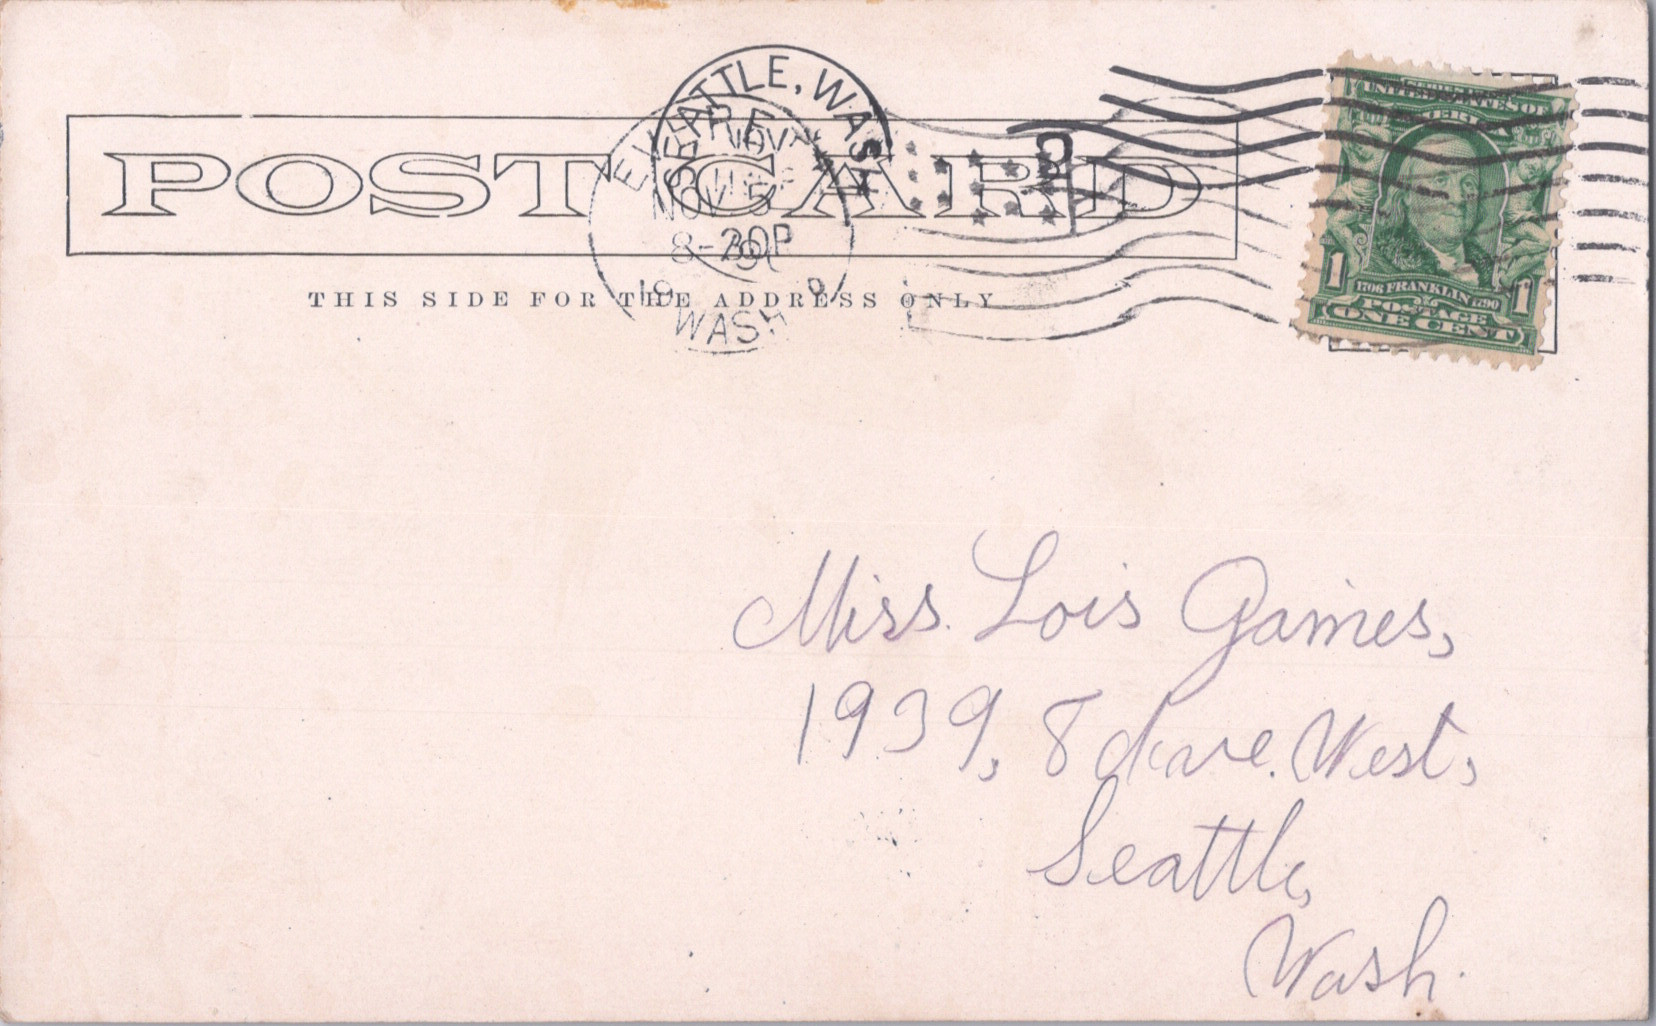 SEATTLE, WASH
NOV 5
8-30P
WASH
POST CARD
THIS SIDE FOR THE ADDRESS ONLY
UNITED STATES OF
AMERICA
1 1706 FRANKLIN 1790 1
POSTAGE
ONE CENT
Miss. Lois Gaines,
1939, 8 Ave. West,
Seattle,
Wash.